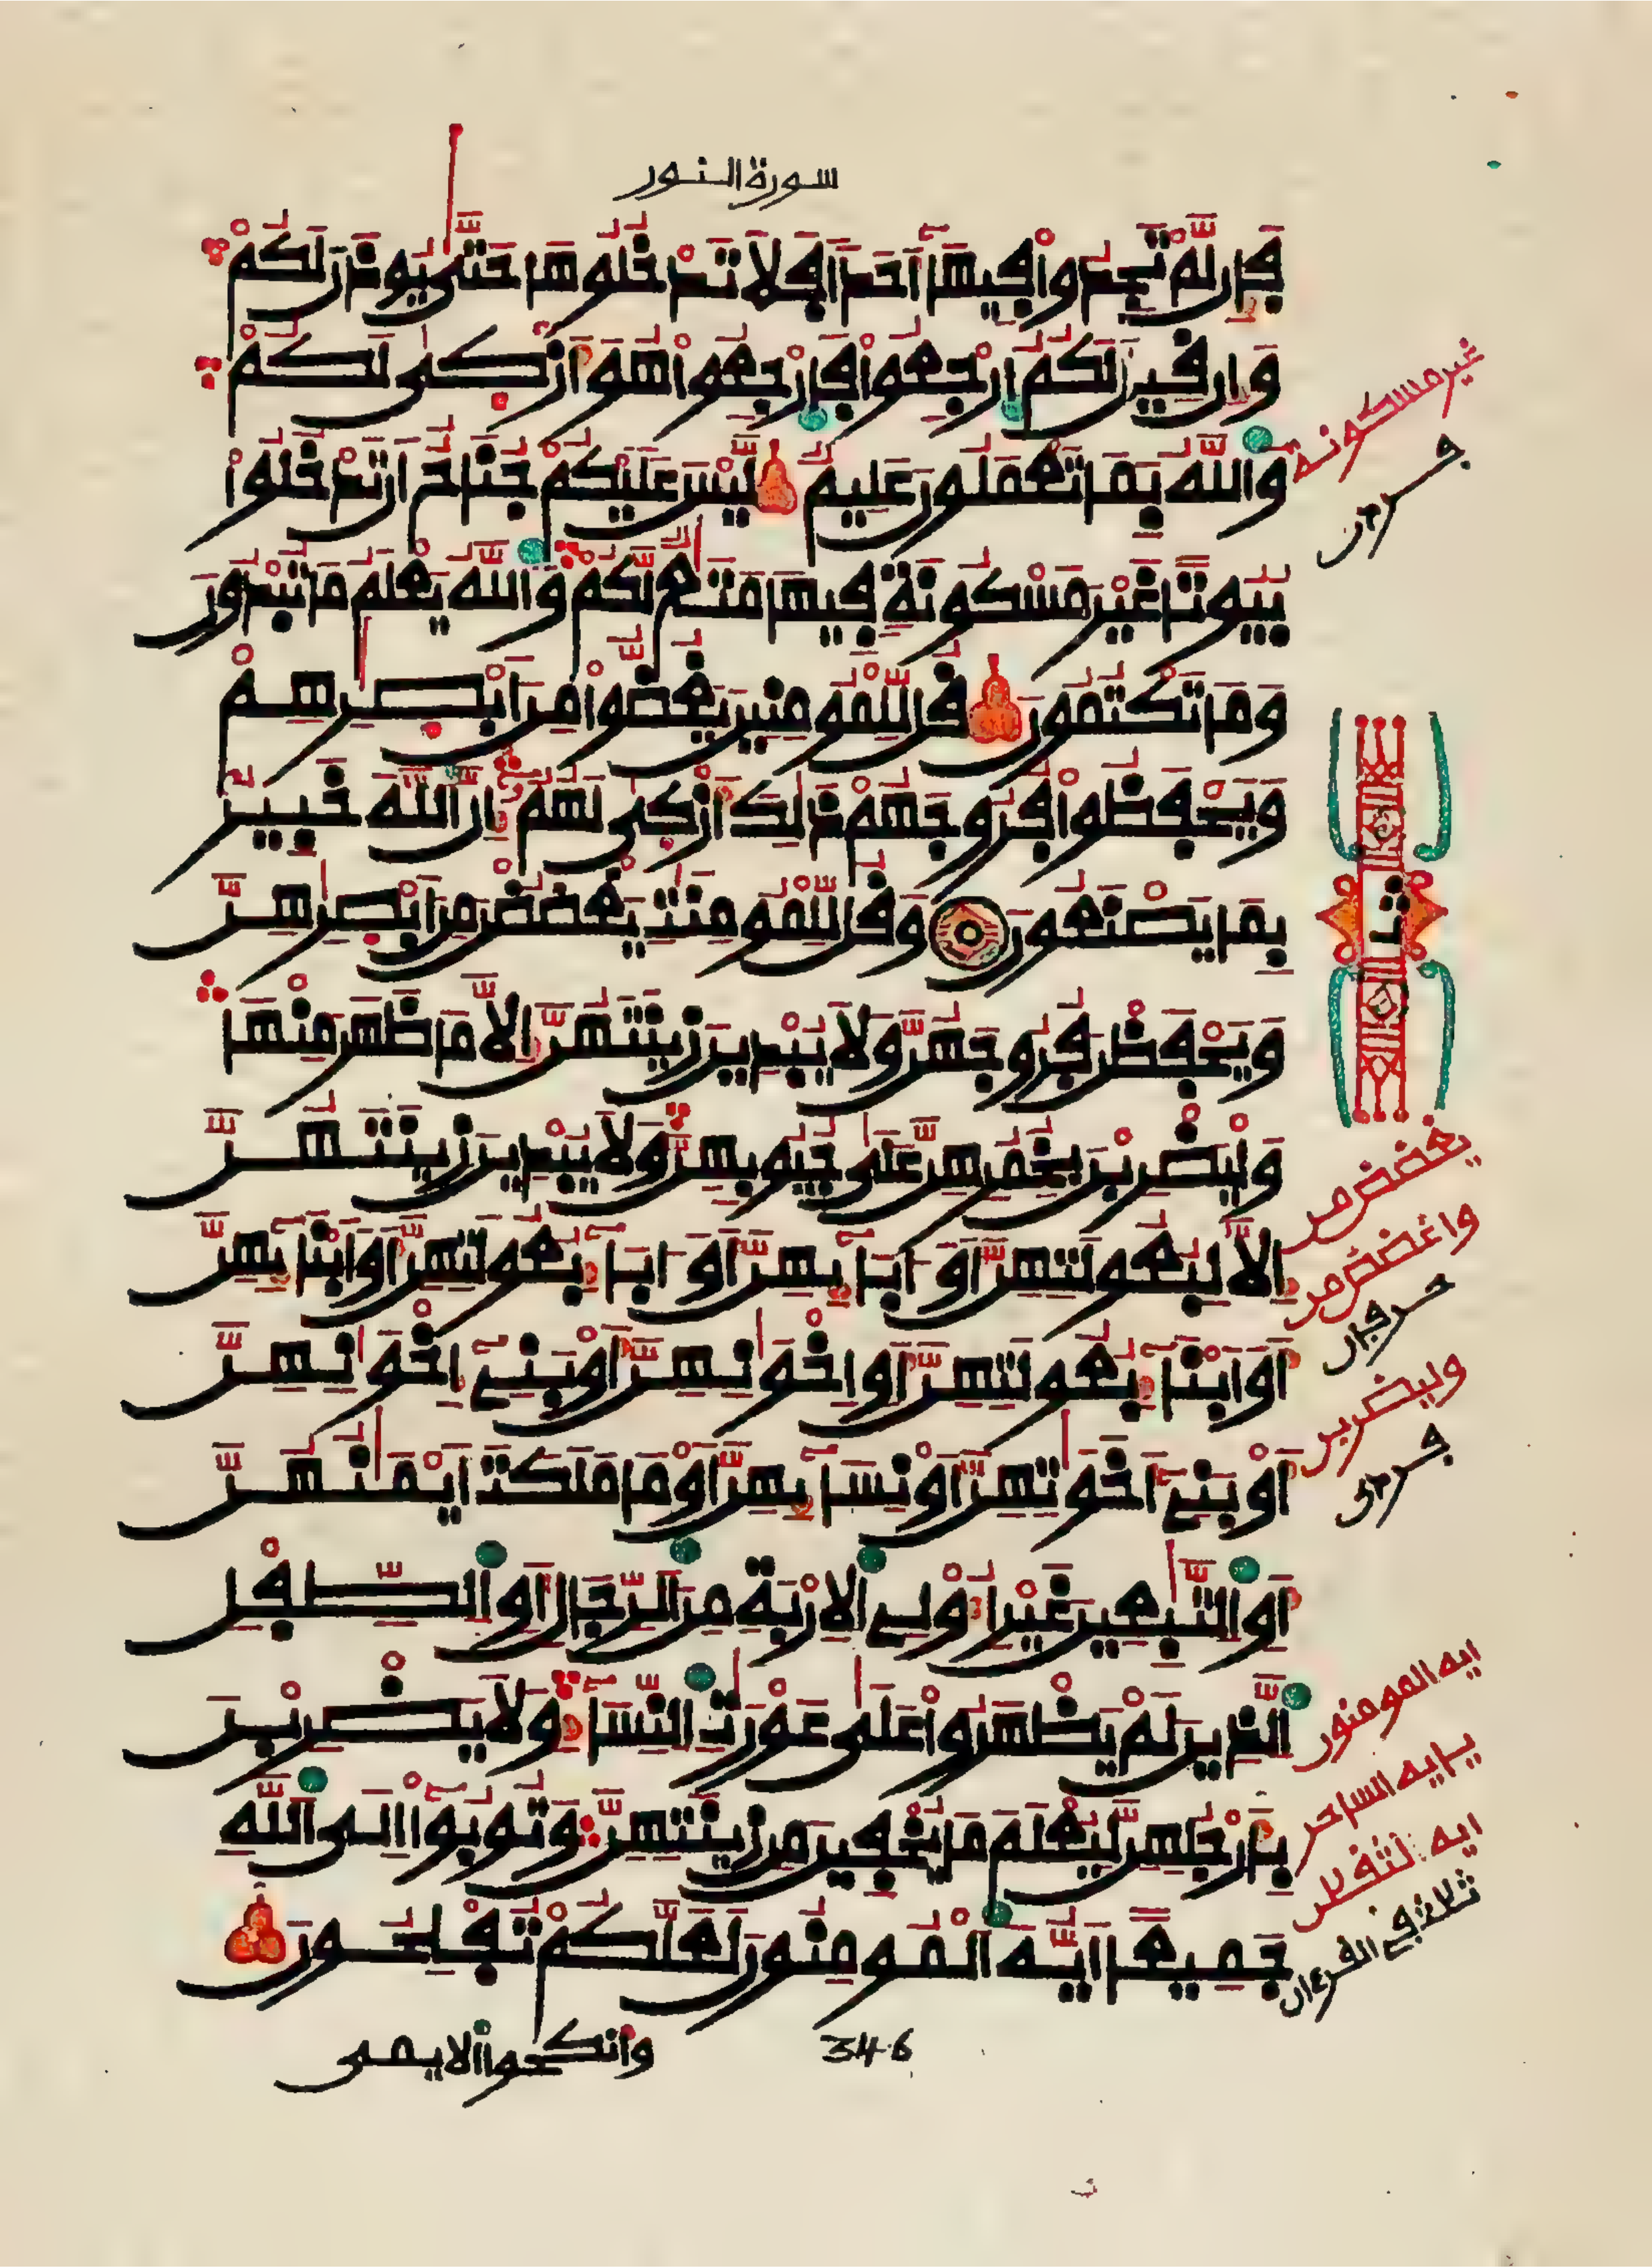 سورة النور
فَإِن لَّمْ تَجِدُوا۟ فِيهَآ أَحَدًا فَلَا تَدْخُلُوهَا حَتَّىٰ يُوذَنَ لَكُمْ
وَإِن قِيلَ لَكُمُ ارْجِعُوا۟ فَارْجِعُوا۟ هُوَ أَزْكَىٰ لَكُمْ
وَاللَّهُ بِمَا تَعْمَلُونَ عَلِيمٌ لَّيْسَ عَلَيْكُمْ جُنَاحٌ أَن تَدْخُلُوا۟
بُيُوتًا غَيْرَ مَسْكُونَةٍ فِيهَا مَتَٰعٌ لَّكُمْ وَاللَّهُ يَعْلَمُ مَا تُبْدُونَ
وَمَا تَكْتُمُونَ قُل لِّلْمُومِنِينَ يَغُضُّوا۟ مِنَ ابْصَٰرِهِمْ
وَيَحْفَظُوا۟ فُرُوجَهُمْ ذَٰلِكَ أَزْكَىٰ لَهُمُۥٓ إِنَّ اللَّهَ خَبِيرٌ
بِمَا يَصْنَعُونَ وَقُل لِّلْمُومِنَٰتِ يَغْضُضْنَ مِنَ ابْصَٰرِهِنَّ
وَيَحْفَظْنَ فُرُوجَهُنَّ وَلَا يُبْدِينَ زِينَتَهُنَّ إِلَّا مَا ظَهَرَ مِنْهَا
وَلْيَضْرِبْنَ بِخُمُرِهِنَّ عَلَىٰ جُيُوبِهِنَّ وَلَا يُبْدِينَ زِينَتَهُنَّ
إِلَّا لِبُعُولَتِهِنَّ أَوَ ابَآئِهِنَّ أَوَ ابَآءِ بُعُولَتِهِنَّ أَوَ ابْنَآئِهِنَّ
أَوَ ابْنَآءِ بُعُولَتِهِنَّ أَوِ اخْوَٰنِهِنَّ أَوْ بَنِىٓ إِخْوَٰنِهِنَّ
أَوْ بَنِىٓ أَخَوَٰتِهِنَّ أَوْ نِسَآئِهِنَّ أَوْ مَا مَلَكَتَ ايْمَٰنُهُنَّ
أَوِ التَّٰبِعِينَ غَيْرِ أُو۟لِى الِارْبَةِ مِنَ الرِّجَالِ أَوِ الطِّفْلِ
الَّذِينَ لَمْ يَظْهَرُوا۟ عَلَىٰ عَوْرَٰتِ النِّسَآءِ وَلَا يَضْرِبْنَ
بِأَرْجُلِهِنَّ لِيُعْلَمَ مَا يُخْفِينَ مِن زِينَتِهِنَّ وَتُوبُوٓا۟ إِلَى اللَّهِ
جَمِيعًا أَيُّهَ الْمُومِنُونَ لَعَلَّكُمْ تُفْلِحُونَ
346
وأنكحوا الايمى
غير مسكونة
ثمن
يغضضن من
واغضض من
حرفان
وليضربن
ايه المومنون
يا ايه الساحر
ايه الثقلن
ثلاث في القرءان